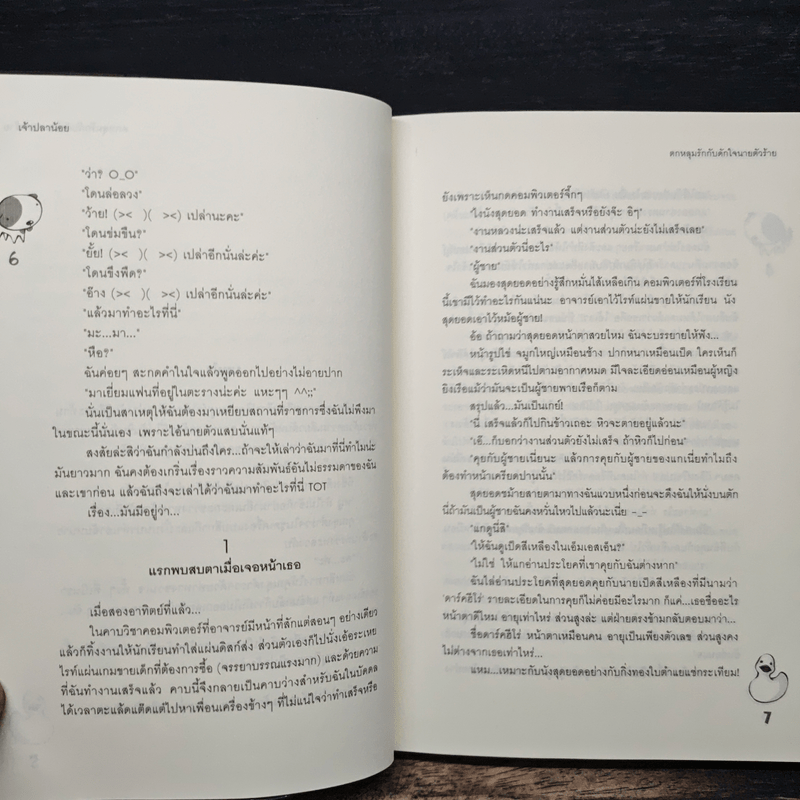 เจ้าปลาน้อย
"ว่า? O_O"
"โดนล่อลวง"
"ว้าย! (>< )( ><) เปล่านะคะ"
"โดนข่มขืน?"
"ยี้ย! (>< )( ><) เปล่าอีกนั่นล่ะค่ะ"
"โดนขึงพืด?"
"อ๊าง (>< )( ><) เปล่าอีกนั่นล่ะค่ะ"
"แล้วมาทำอะไรที่นี่"
"มะ...มา..."
"หือ?"
ฉันค่อยๆ สะกดคำในใจแล้วพูดออกไปอย่างไม่อายปาก
"มาเยี่ยมแฟนที่อยู่ในตะรางน่ะค่ะ แหะๆๆ ^^;;"
นั่นเป็นสาเหตุให้ฉันต้องมาเหยียบสถานที่ราชการซึ่งฉันไม่พึงมา
ในขณะนี้นั่นเอง เพราะไอ้นายตัวแสบนั่นแท้ๆ
สงสัยล่ะสิว่าฉันกำลังบ่นถึงใคร...ถ้าจะให้เล่าว่าฉันมาที่นี่ทำไมน่ะ
มันยาวมาก ฉันคงต้องเกริ่นเรื่องราวความสัมพันธ์อันไม่ธรรมดาของฉัน
และเขาก่อน แล้วฉันถึงจะเล่าได้ว่าฉันมาทำอะไรที่นี่ TOT
เรื่อง...มันมีอยู่ว่า...
1
แรกพบสบตาเมื่อเจอหน้าเธอ
เมื่อสองอาทิตย์ที่แล้ว...
ในคาบวิชาคอมพิวเตอร์ที่อาจารย์มีหน้าที่สักแต่สอนๆ อย่างเดียว
แล้วก็ทิ้งงานให้นักเรียนทำใส่แผ่นดิสก์ส่ง ส่วนตัวเองก็ไปนั่งเอ้อระเหย
ไรท์แผ่นเกมขายเด็กที่ต้องการซื้อ (จรรยาบรรณแรงมาก) และด้วยความ
ที่ฉันทำงานเสร็จแล้ว คาบนี้จึงกลายเป็นคาบว่างสำหรับฉันในบัดดล
ได้เวลาตะแล้ดแต๊ดแต๋ไปหาเพื่อนเครื่องข้างๆ ที่ไม่แน่ใจว่าทำเสร็จหรือ
6
ตกหลุมรักกับดักใจนายตัวร้าย
ยังเพราะเห็นกดคอมพิวเตอร์จึ๊กๆ
"ไงนังสุดยอด ทำงานเสร็จหรือยังจ๊ะ อิๆ"
"งานหลวงน่ะเสร็จแล้ว แต่งานส่วนตัวน่ะยังไม่เสร็จเลย"
"งานส่วนตัวนี่อะไร"
"ผู้ชาย"
ฉันมองสุดยอดอย่างรู้สึกหมั่นไส้เหลือเกิน คอมพิวเตอร์ที่โรงเรียน
นี้เขามีไว้ทำอะไรกันแน่นะ อาจารย์เอาไว้ไรท์แผ่นขายให้นักเรียน นัง
สุดยอดเอาไว้หม้อผู้ชาย!
อ้อ ถ้าถามว่าสุดยอดหน้าตาสวยไหม ฉันจะบรรยายให้ฟัง...
หน้ารูปไข่ จมูกใหญ่เหมือนช้าง ปากหนาเหมือนเป็ด ใครเห็นก็
ระเห็จและระเหิดหนีไปตามอากาศหมด มีใจละเอียดอ่อนเหมือนผู้หญิง
ยิงเรือแม้ว่ามันจะเป็นผู้ชายพายเรือก็ตาม
สรุปแล้ว...มันเป็นเกย์!
"นี่ เสร็จแล้วก็ไปกินข้าวเถอะ หิวจะตายอยู่แล้วนะ"
"เอ๊...ก็บอกว่างานส่วนตัวยังไม่เสร็จ ถ้าหิวก็ไปก่อน"
"คุยกับผู้ชายเนี่ยนะ แล้วการคุยกับผู้ชายของแกเนี่ยทำไมถึง
ต้องทำหน้าเครียดปานนั้น"
สุดยอดชม้ายสายตามาทางฉันแวบหนึ่งก่อนจะดึงฉันให้นั่งบนตัก
นี่ถ้ามันเป็นผู้ชายฉันคงหวั่นไหวไปแล้วนะเนี่ย -_-
"แกดูนี่สิ"
"ให้ฉันดูเป็ดสีเหลืองในเอ็มเอสเอ็น?"
"ไม่ใช่ ให้แกอ่านประโยคที่เขาคุยกับฉันต่างหาก"
ฉันไล่อ่านประโยคที่สุดยอดคุยกับนายเป็ดสีเหลืองที่มีนามว่า
'ดาร์คฮีโร่' รายละเอียดในการคุยก็ไม่ค่อยมีอะไรมาก ก็แค่...เธอชื่ออะไร
หน้าตาดีไหม อายุเท่าไหร่ ส่วนสูงล่ะ แต่ฝ่ายตรงข้ามกลับตอบมาว่า...
ชื่อดาร์คฮีโร่ หน้าตาเหมือนคน อายุเป็นเพียงตัวเลข ส่วนสูงคง
ไม่ต่างจากเธอเท่าไหร่...
แหม...เหมาะกับนังสุดยอดอย่างกับกิ่งทองใบตำแยแช่กระเทียม!
7